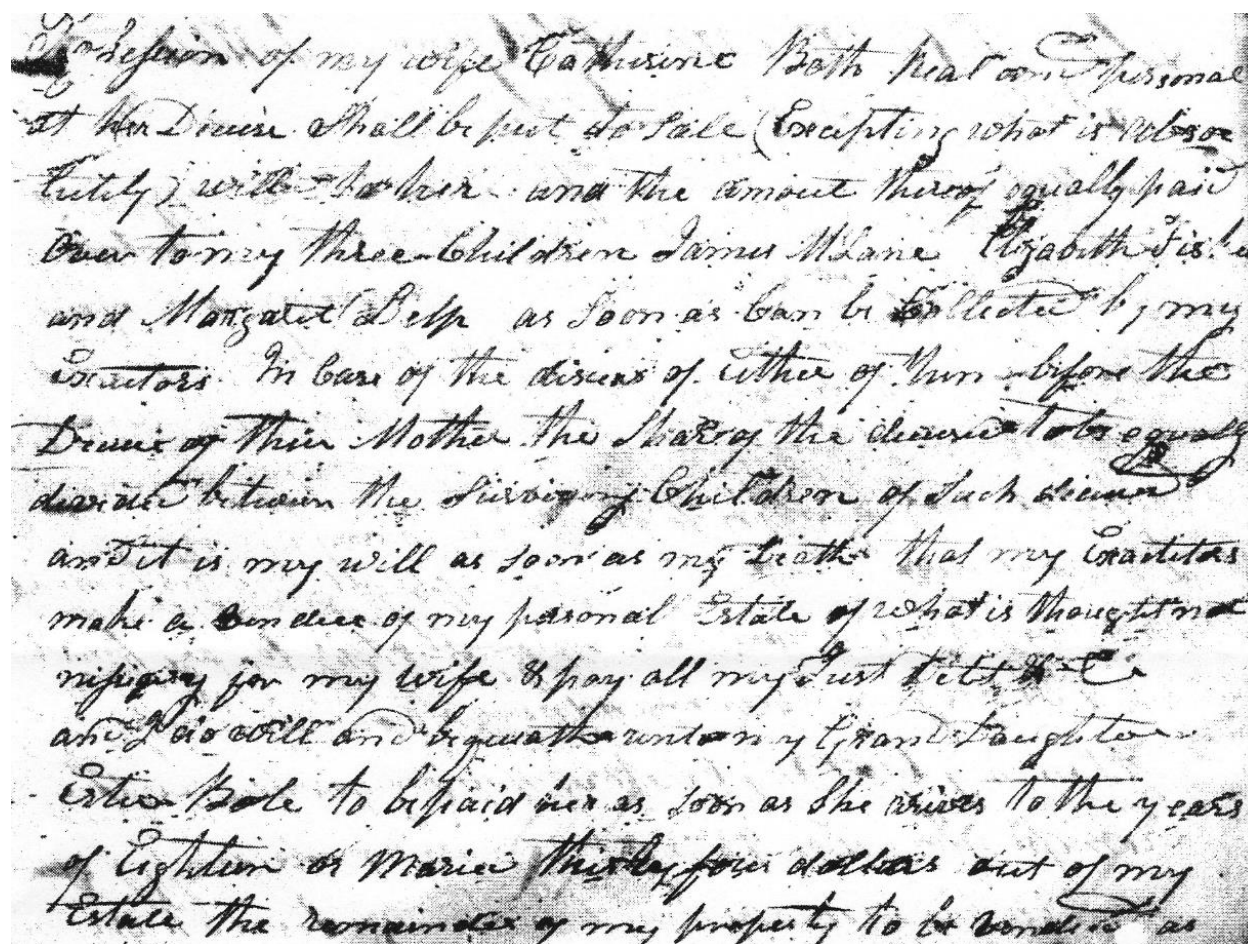 of my wife Catherine Both Real and personal
at Her Decise Shall be put to Sale (Excepting what is Abso
lutely) will to her and the amout therof equally paid
Over to my three Children James McLane Elizabeth
and Margaret Delp as Soon as Can be Collected by my
Executors In Case of the of Either of them before the
of their Mother the Share of the to be equally
divided between the Surviving Children of Such
and it is my will as soon as my Death that my
make a vendue of my personal Estate of what is thought not
for my wife & pay all my Just Debts & C
and I do will and bequath unto my Grand Daughter
Bole to be paid her as soon as She arives to the years
of Eighteen or Marie thirty four dollars out of my
Estate the remainder of my property to be as